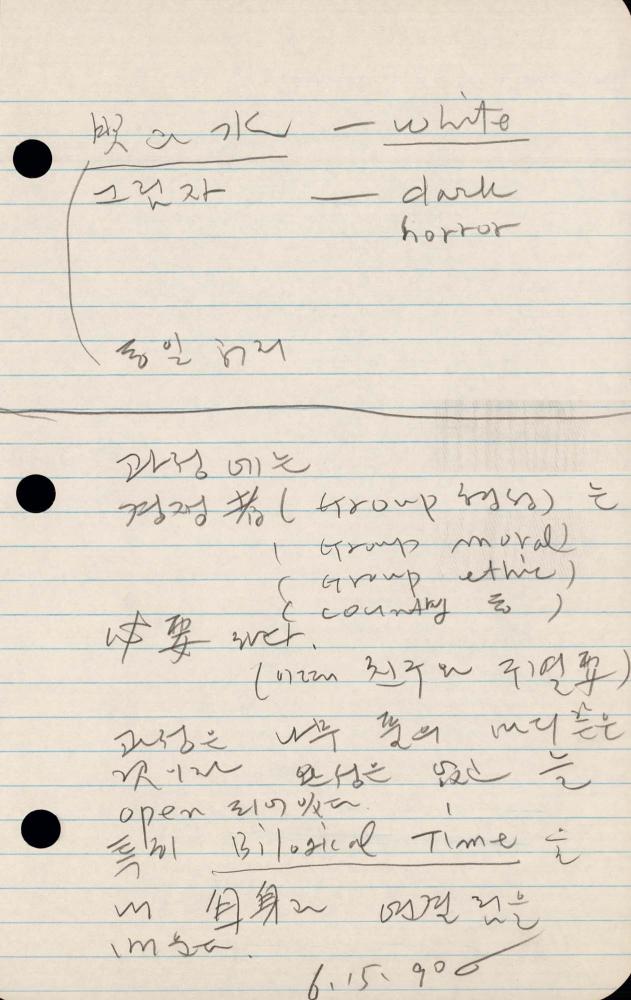 빛 — white
그림자 — dark
horror
동일 하리
과정에는
결정 者 ( Group 형성) 는
( Group moral)
( Group ethic)
( country 등 )
必要 하다.
(이때 친구와
과정은 나무 풀의 마디 같은
것이라 완성은 없는 늘
open 되어 있다.
특히 Bilogical Time 을
내 自身과 연결 됨을
6.15.90